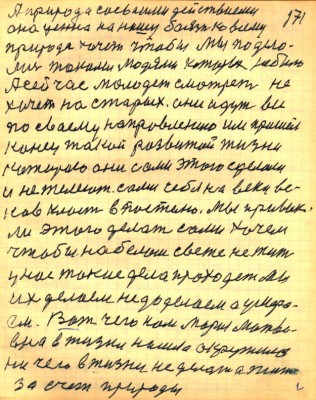 171
А природа со своими действиями
она ценна на нашу батьковщину
природа хочет чтобы мы подело-
лись такими людями которых не было
А сейчас молодеж смотреть не
хочет на старых. они идут все
по своему направлению им пришел
конец такой развитой жизни
которого они сами этого сделали
и не жилеют сами себя на веки ве-
ков класть в постено. Мы привык-
ли этого делать сами хочем
чтобы на белом свете не жит
у нас такие дела проходят мы
их делаем не доделаем а умира-
ем. Вот чего нам Мария Матве-
вна в жизни нашла окружила
ни чего в жизни не делать а жить
за счет природы